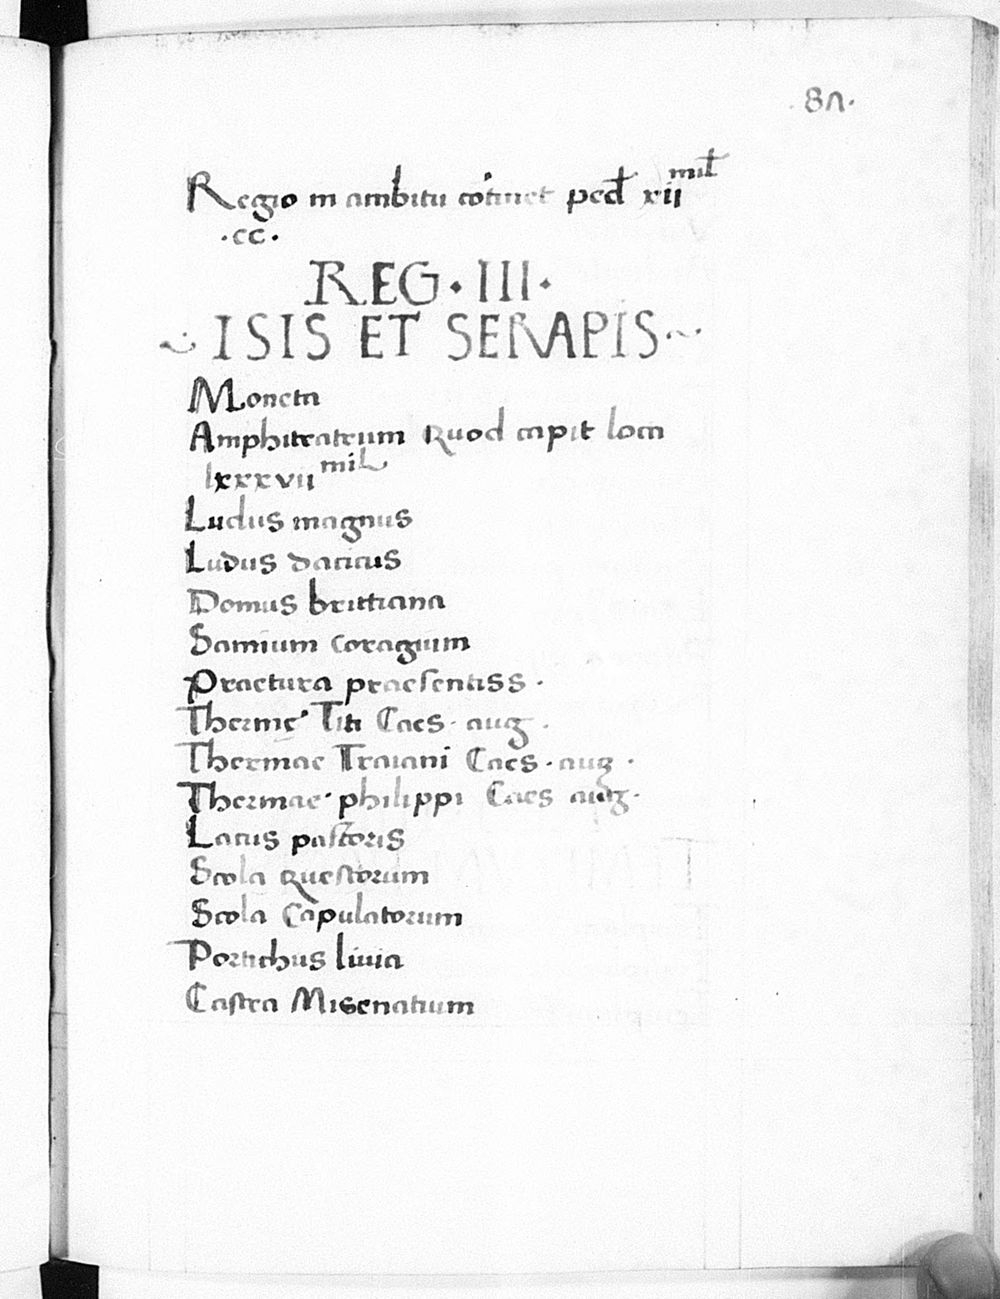 ·87·
Regio in ambitu cōtinet ped̄ xii mil̄
·cc·
REG · III ·
ISIS ET SERAPIS
Moneta
Amphiteatrum Quod capit loca
lxxxvii mil
Ludus magnus
Ludus dacicus
Domus brittiana
Samium coragium
Praetura praesentiss ·
Therme Titi Caes · aug ·
Thermae Traiani Caes · aug ·
Thermae philippi Caes aug ·
Lacus pastoris
Scola questorum
Scola Capulatorum
Portichus livia
Castra Misenatium